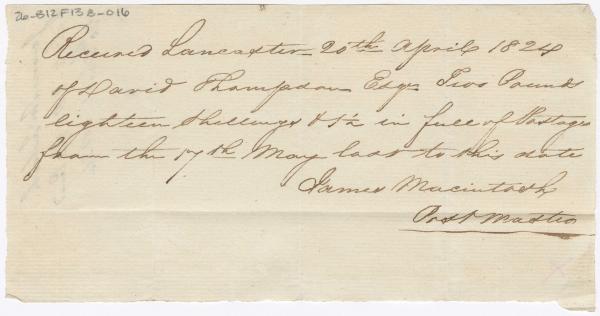 26-B12F13B-016
Received Lancaster 20th April 1824
of David Thompson Esqr Two Pounds
eighteen Shillings & 5½ in full of Postages
from the 17th May last to this date
James Macintosh
Post Master